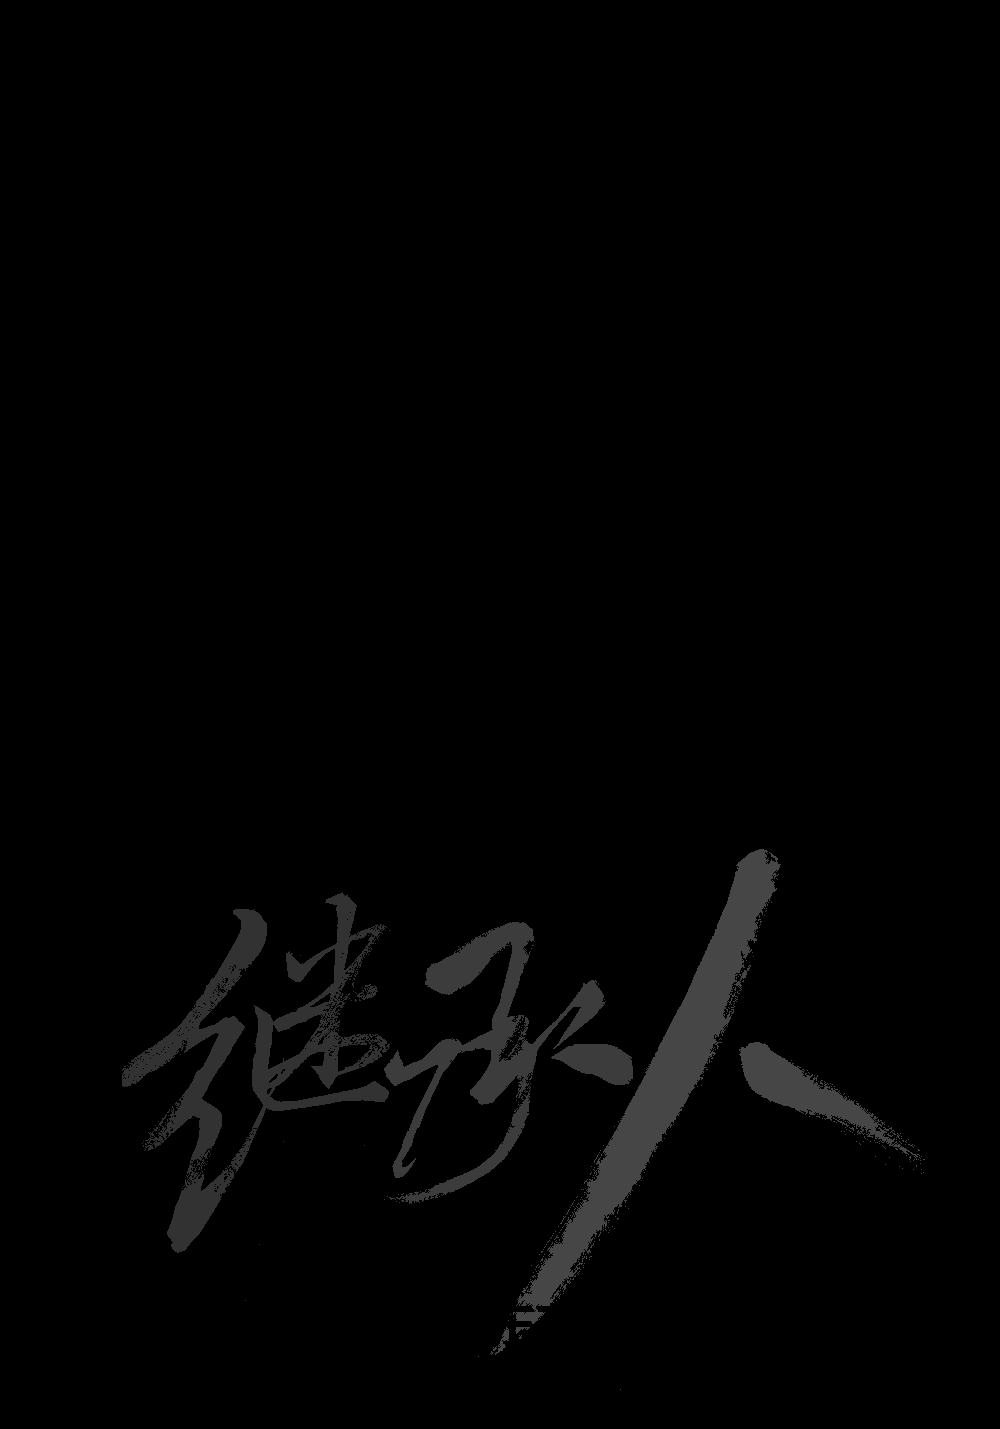 继承人